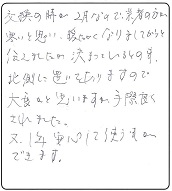 交換の時が2月なので、業者の方が
寒いと思い、暖かくなりましてからと
伝えましたが決まっているものの、
北側に置いておりますので
大変かと思いますが、手際良く
されました。
又、1年安心して使う事が
できます。